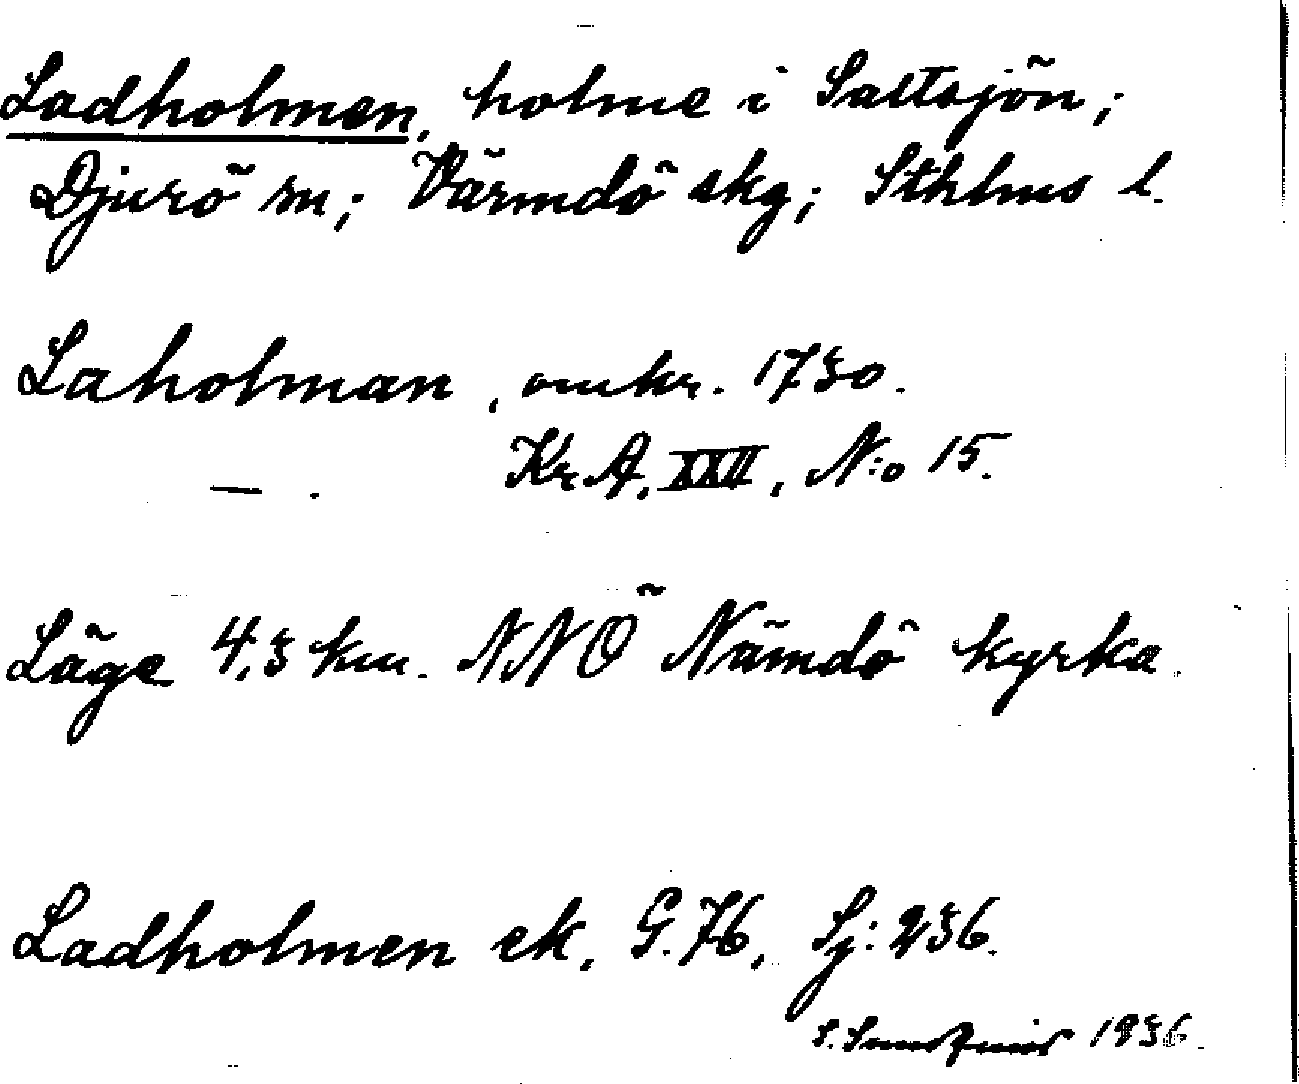 Ladholmen, holme i Saltsjön;
Djurö sn; Värmdö skg; Sthlms l.
Laholman, omkr. 1730.
— . Kr.A. XXII, N:o 15.
Läge 4,3 km. NNÖ Nämdö kyrka.
Ladholmen ek. G.76, Sj: 236.
S. 1936.